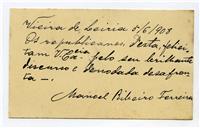 Vieira de Leiria 5/6/908
Os republicanos, desta, felici-
tam V. Ex.cia pelo seu brilhante
discurso e denodada desafron-
ta —.
Manoel Ribeiro Ferreira